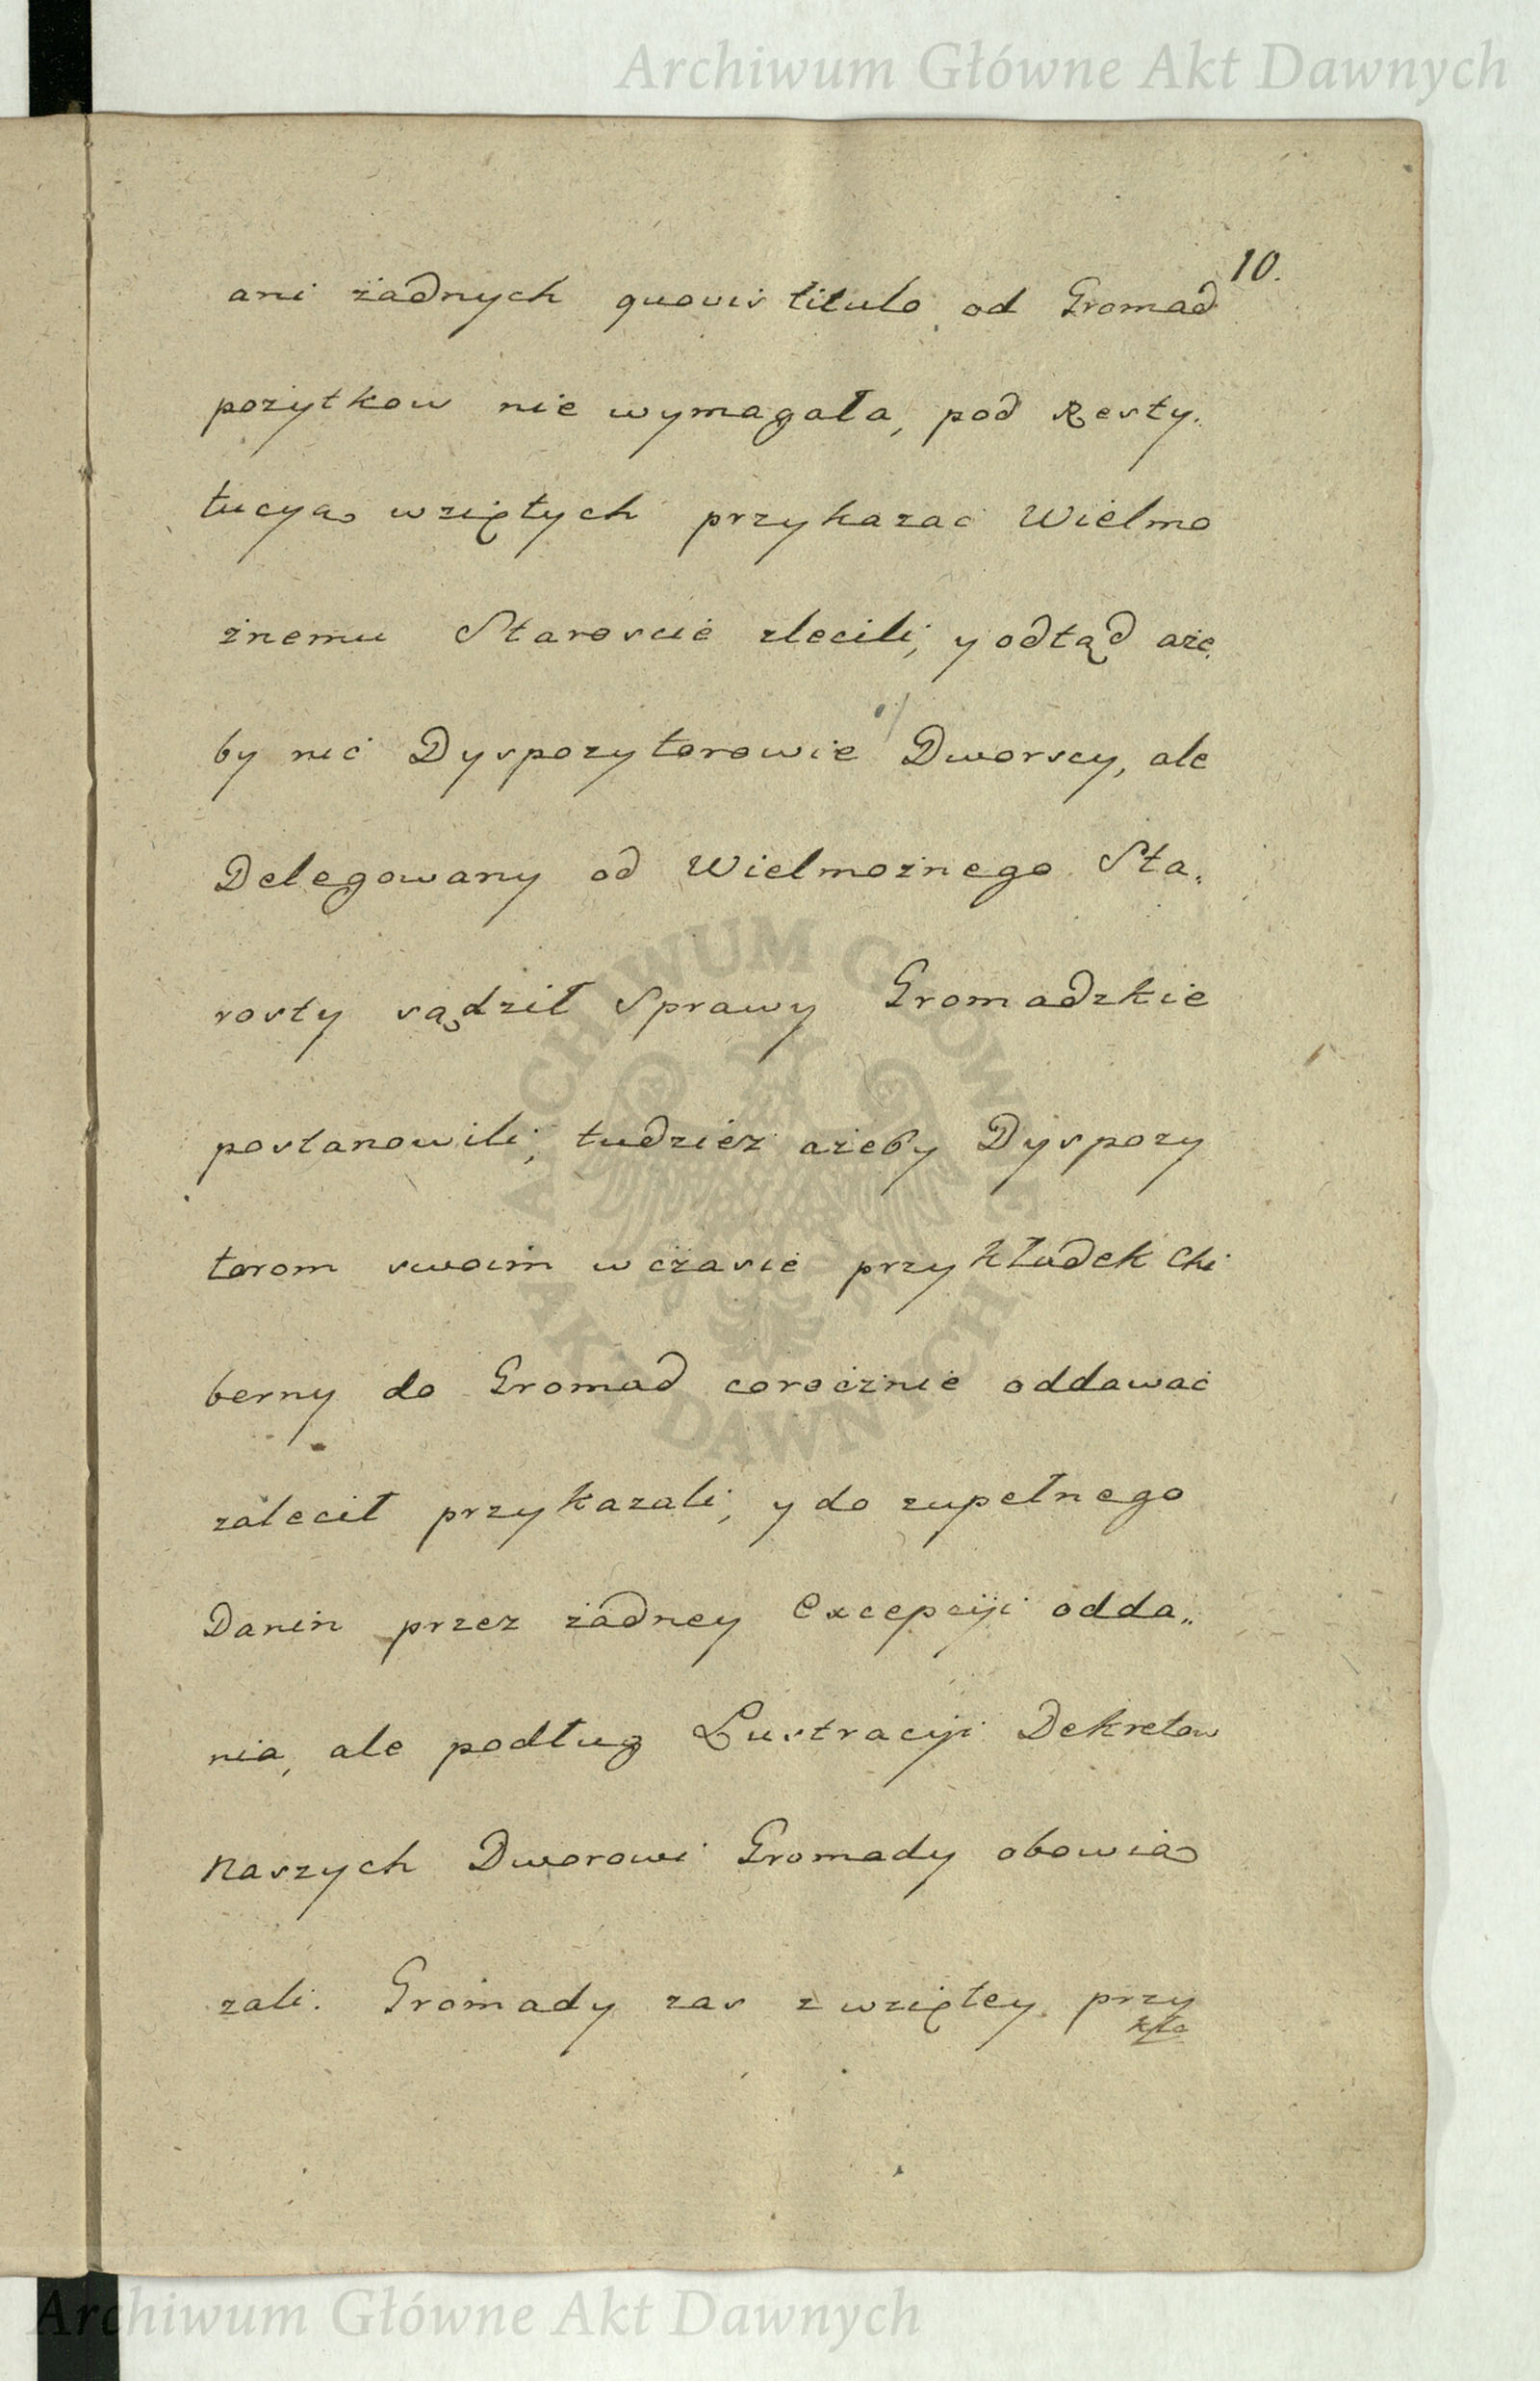 Archiwum Główne Akt Dawnych
10.
ani żadnych quovis titulo od Gromad
pożytkow nie wymagała, pod Resty.
tucyą wziętych przykazać Wielmo
żnemu Staroscie zlecili, y odtąd aże
by nie Dyspozytorowie Dworscy, ale
Delegowany od Wielmożnego Sta„
rosty sądził Sprawy Gromadzkie
postanowili, tudzież ażeby Dyspozy
torom swoim w czasie przykładek Chi
berny do Gromad corocznie oddawać
zalecił przykazali, y do zupełnego
Danin przez żadney Excepcyi odda„
nia, ale podług Lustracyi Dekretow
Naszych Dworowi Gromady obowią
zali. Gromady zas z wziętey przy
kła
ARCHIWUM GŁÓWNE
AKT DAWNYCH
Archiwum Główne Akt Dawnych